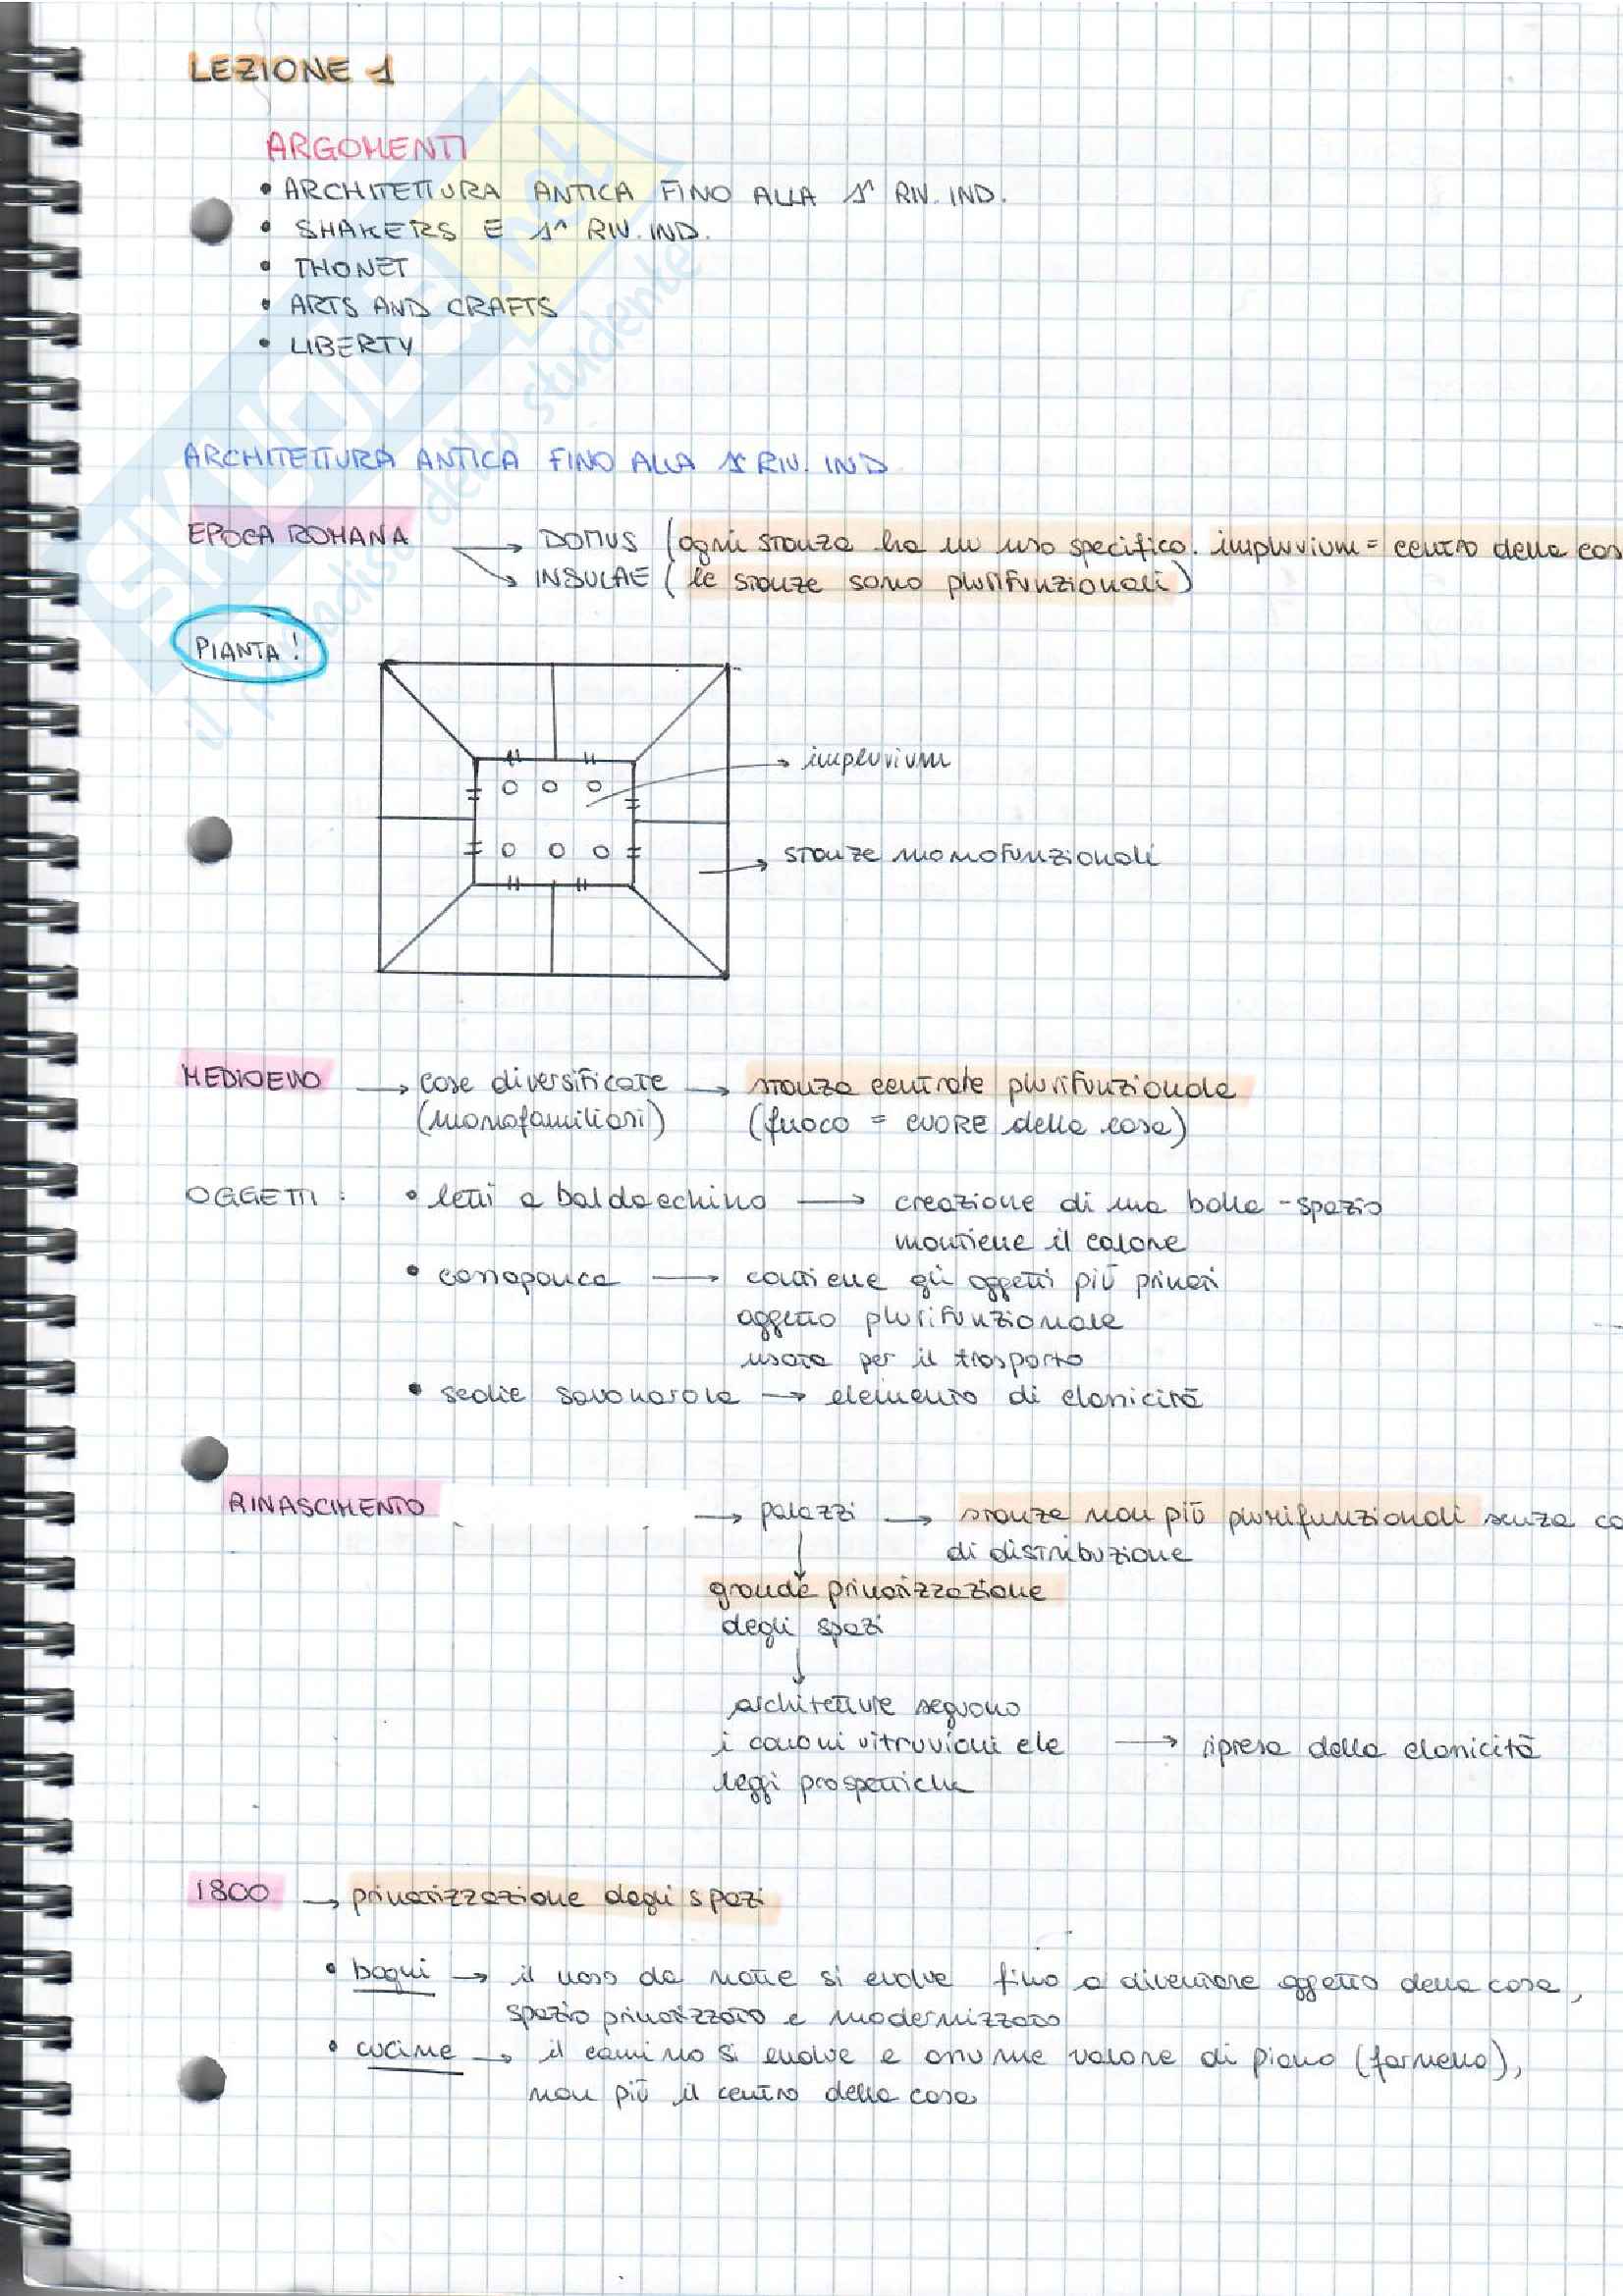 LEZIONE 1
ARGOMENTI
• ARCHITETTURA ANTICA FINO ALLA 1ª RIV. IND.
• SHAKERS E 1ª RIV. IND.
• THONET
• ARTS AND CRAFTS
• LIBERTY
ARCHITETTURA ANTICA FINO ALLA 1ª RIV. IND
EPOCA ROMANA → DOMUS (ogni stanza ha un uso specifico. impluvium = centro della cas
→ INSULAE (le stanze sono plurifunzionali)
PIANTA!
→ impluvium
→ stanze monofunzionali
MEDIOEVO → case diversificate → stanza centrale plurifunzionale
(monofamiliari) (fuoco = CUORE della casa)
OGGETTI: • letti a baldacchino → creazione di una bolla - spazio
mantiene il calore
• cassapanca → contiene gli oggetti più privati
oggetto plurifunzionale
usata per il trasporto
• sedie savonarola → elemento di classicità
RINASCIMENTO → palazzi → stanze non più plurifunzionali senza co
di distribuzione
↓
grande privatizzazione
degli spazi
↓
architetture seguono
i canoni vitruviani e le → ripresa della classicità
leggi prospettiche
1800 → privatizzazione degli spazi
• bagni → il vaso da notte si evolve fino a diventare oggetto della casa,
spazio privatizzato e modernizzato
• cucine → il camino si evolve e assume valore di piano (fornello),
non più il centro della casa
SKUOLA.net
il paradiso dello studente